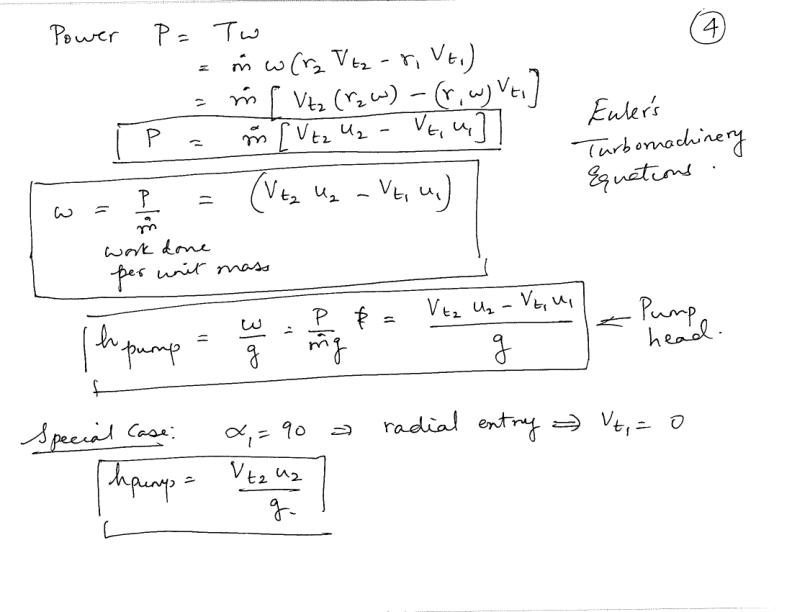 ④
Power P = Tω
= ṁ ω (r₂ V_t₂ - r₁ V_t₁)
= ṁ [ V_t₂ (r₂ω) - (r₁ω) V_t₁ ]
P = ṁ [ V_t₂ u₂ - V_t₁ u₁ ]
Euler's
Turbomachinery
Equations.
ω = P/ṁ = (V_t₂ u₂ - V_t₁ u₁)
work done
per unit mass
h pump = ω/g = P/ṁg = (V_t₂ u₂ - V_t₁ u₁)/g ← Pump
head.
Special Case: α₁ = 90 ⇒ radial entry ⇒ V_t₁ = 0
h pump = V_t₂ u₂/g.